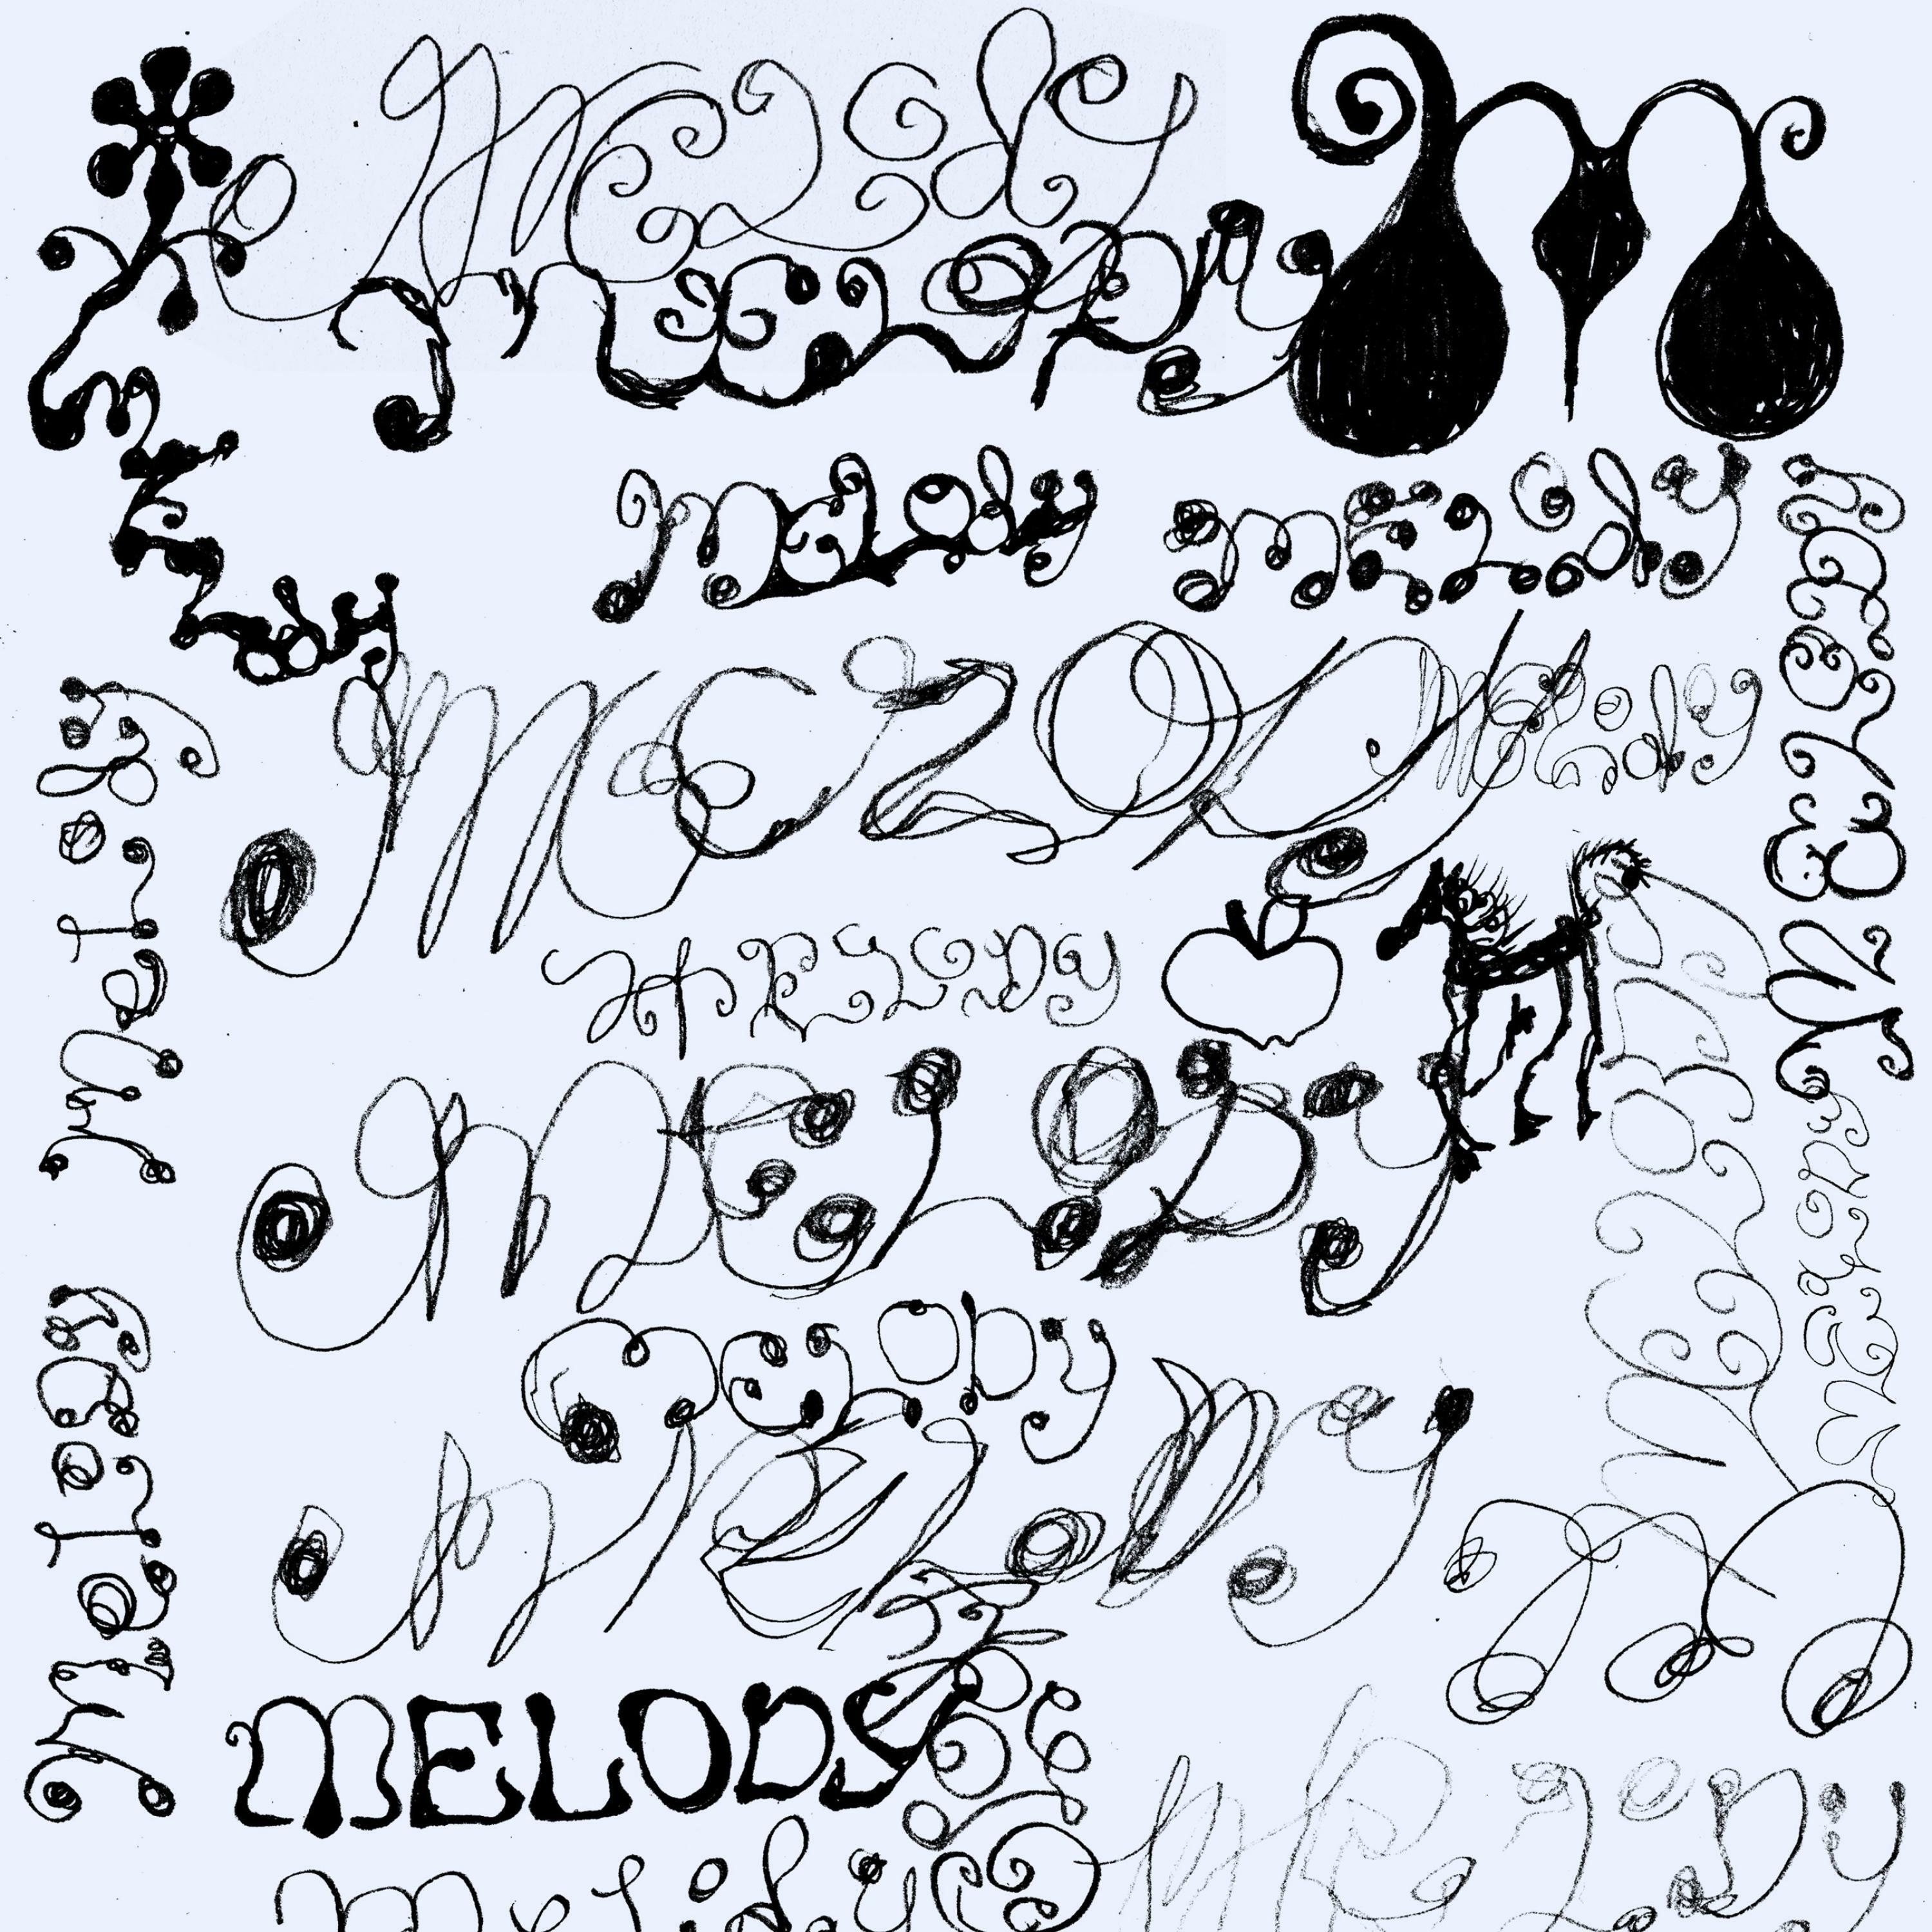 Melody
MELODY
m
melody
melody
melody
MELODY
MELODY
melody
MELODY
melody
MELODY
MELODY
MELODY
melody
MELODY
melody
MELODY
melody
MELODY
melody
MELODY